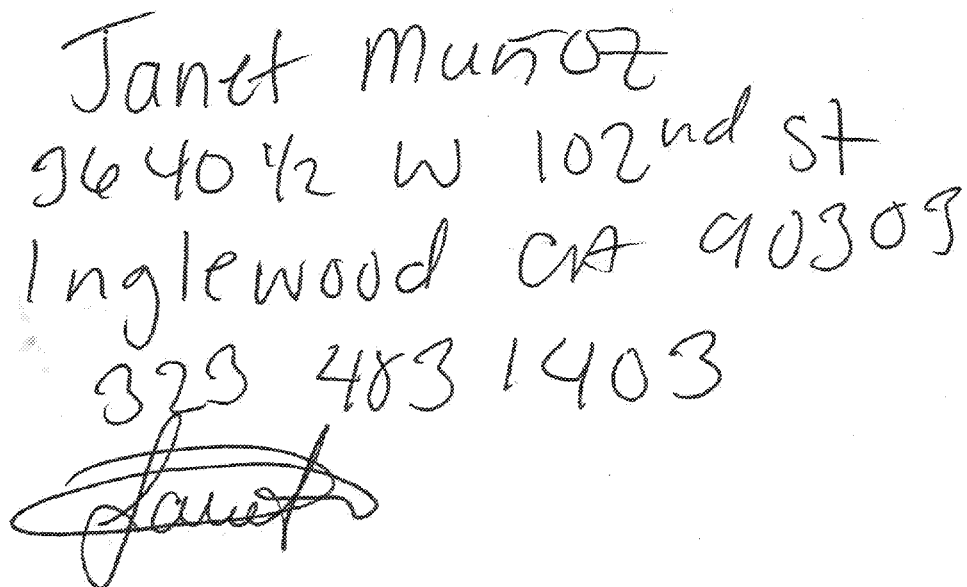 Janet Muñoz
3640 1/2 W 102nd St
Inglewood CA 90303
323 483 1403
Janet